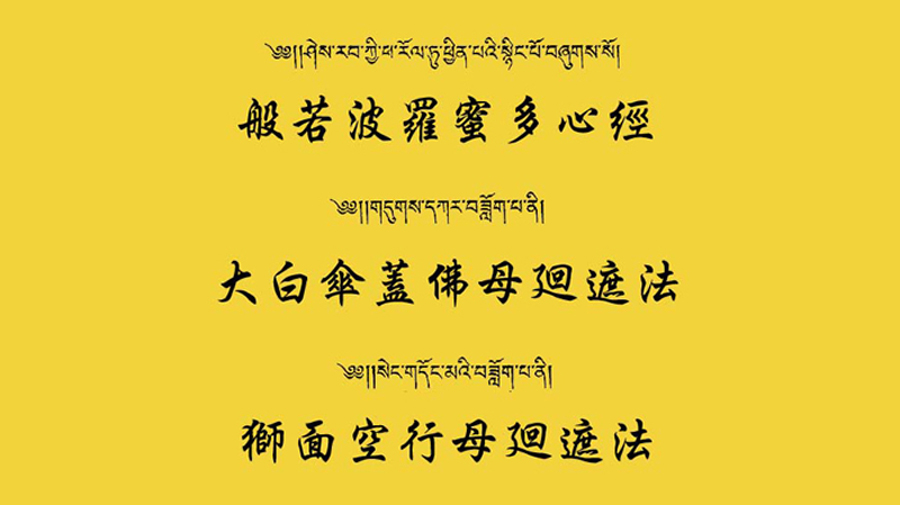 ༄༅།།ཤེས་རབ་ཀྱི་ཕ་རོལ་ཏུ་ཕྱིན་པའི་སྙིང་པོ་བཞུགས་སོ།
般若波羅蜜多心經
༄༅།།གདུགས་དཀར་བཟློག་པ་ནི།
大白傘蓋佛母迴遮法
༄༅།།སེང་གདོང་མའི་བཟློག་པ་ནི།
獅面空行母迴遮法